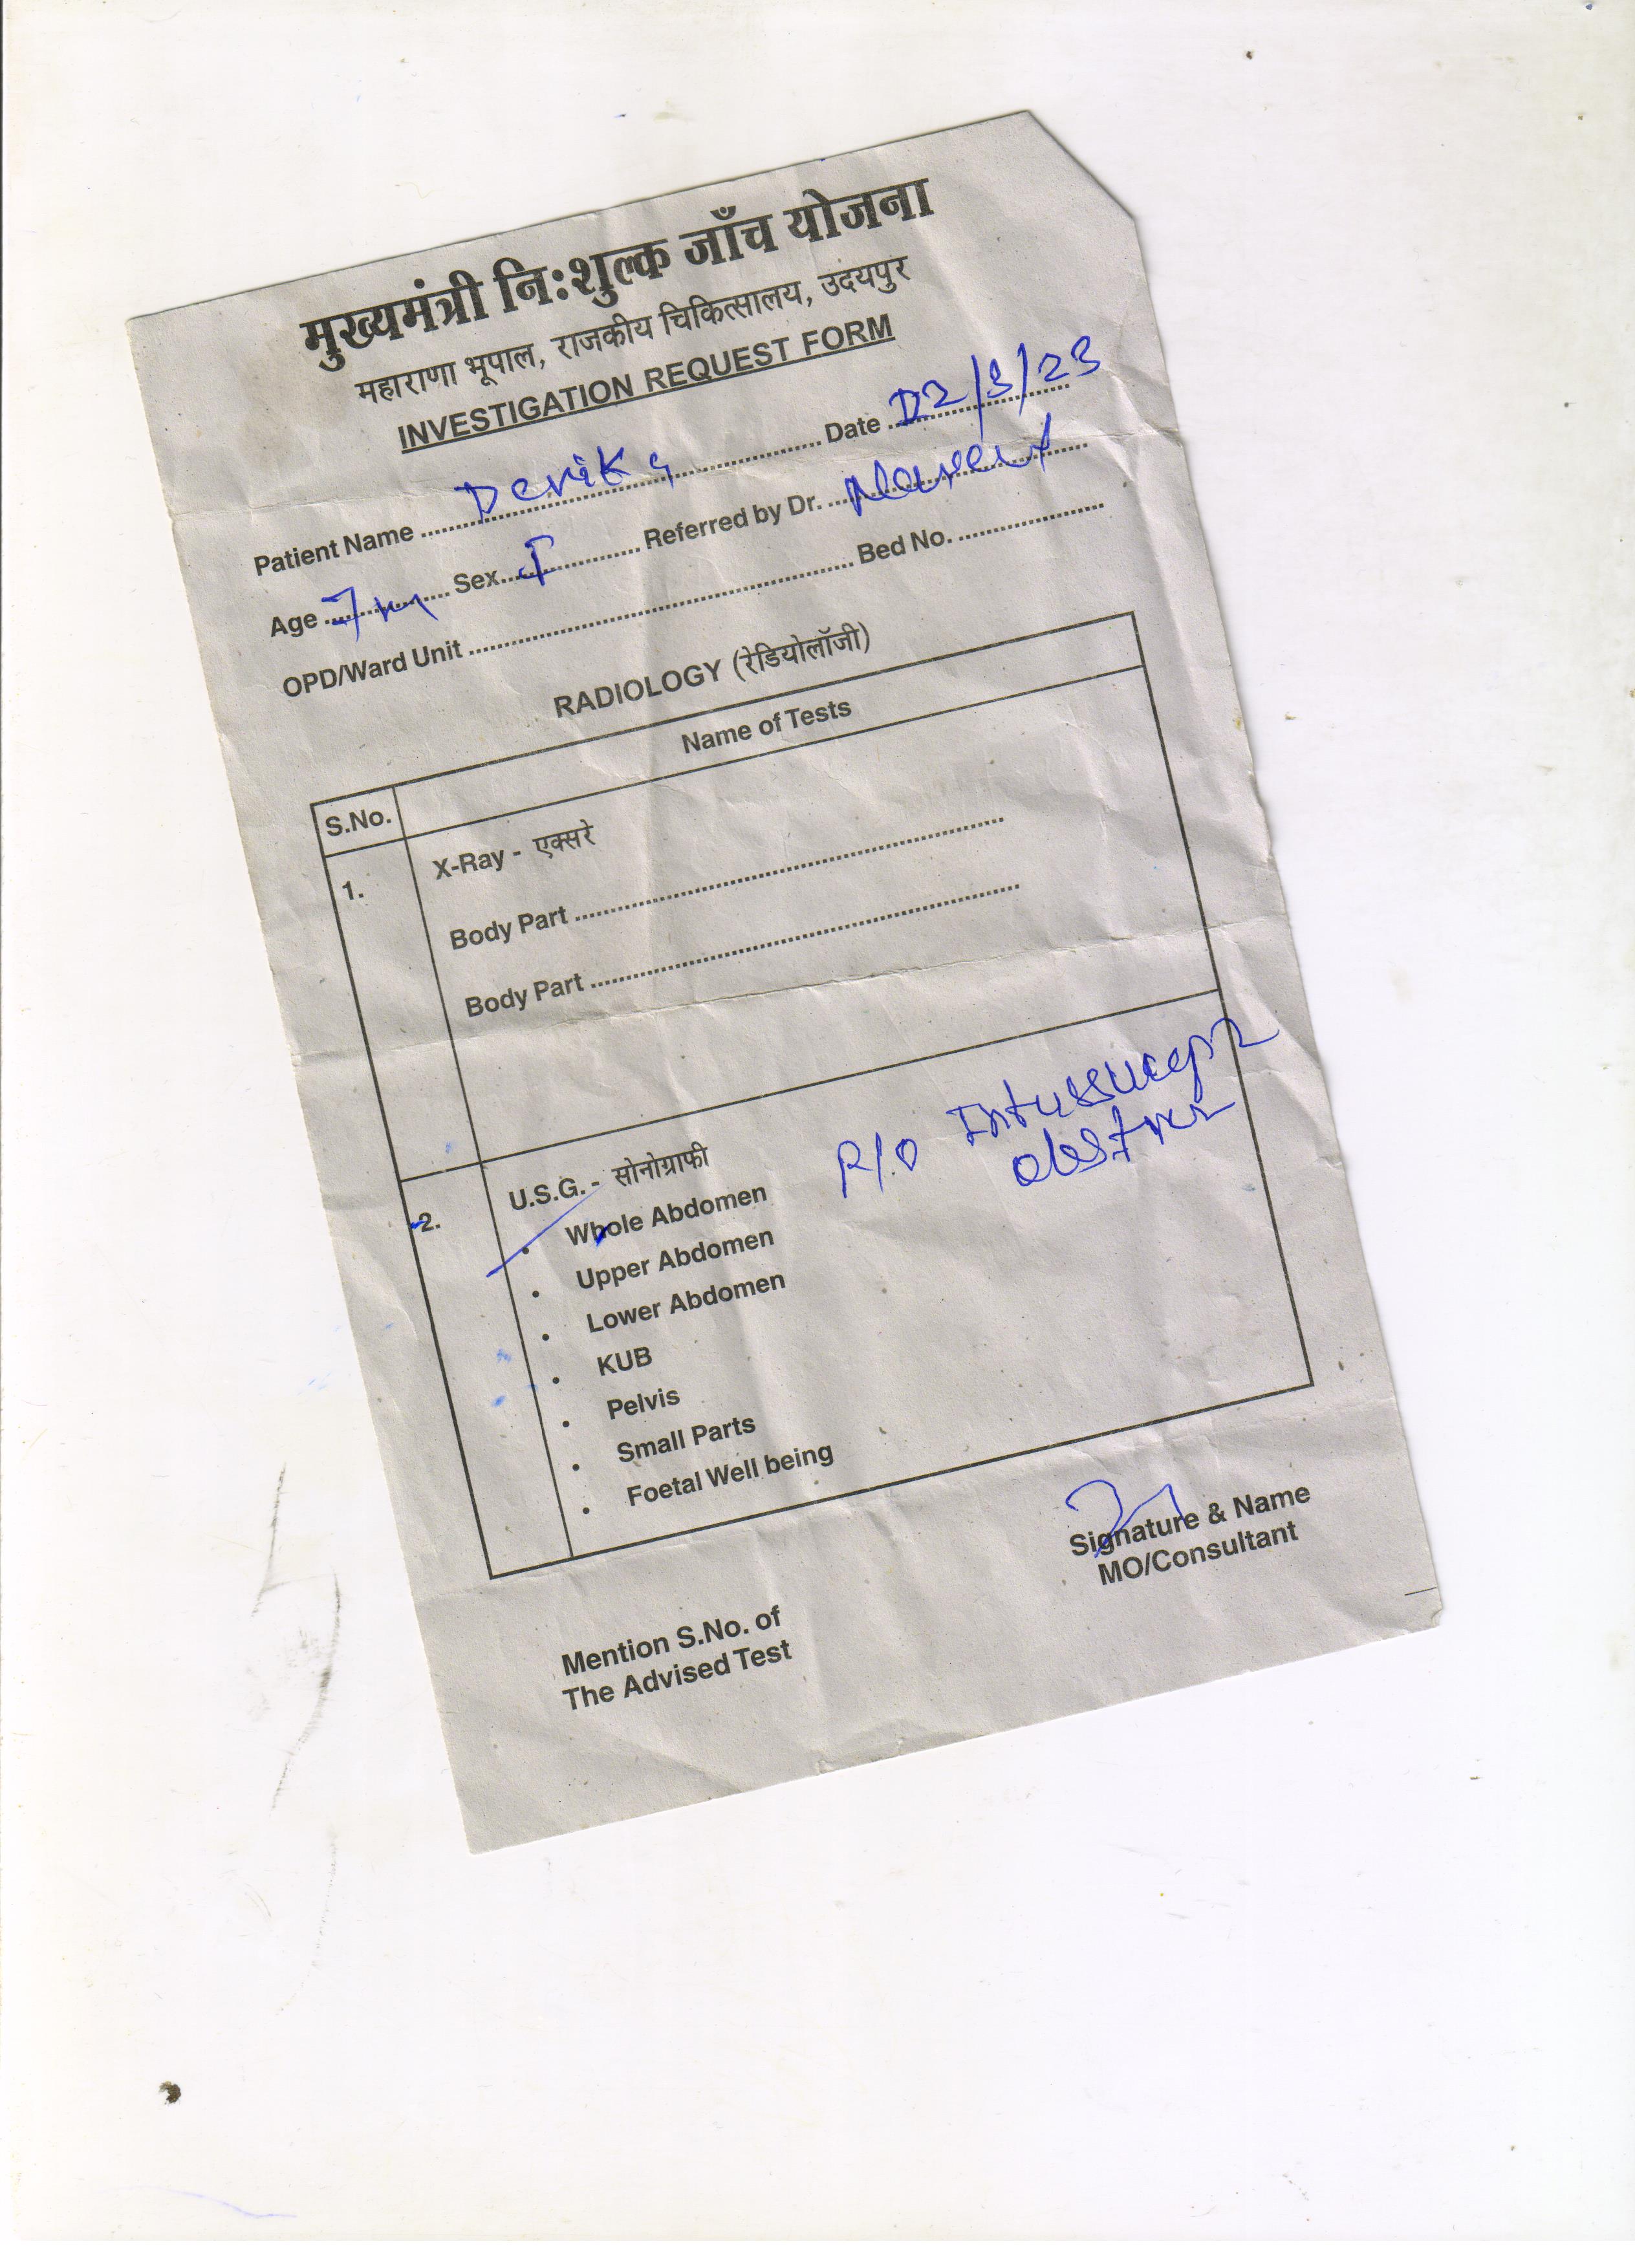 मुख्यमंत्री नि:शुल्क जाँच योजना
महाराणा भूपाल, राजकीय चिकित्सालय, उदयपुर
INVESTIGATION REQUEST FORM
Patient Name Devika Date 02/3/23
Age 7m Sex F Referred by Dr.
OPD/Ward Unit Bed No.
RADIOLOGY (रेडियोलॉजी)
S.No. Name of Tests
1. X-Ray - एक्सरे
Body Part
Body Part
2. U.S.G. - सोनोग्राफी
R/O Intussucep
obstruc
• Whole Abdomen
• Upper Abdomen
• Lower Abdomen
• KUB
• Pelvis
• Small Parts
• Foetal Well being
Signature & Name
MO/Consultant
Mention S.No. of
The Advised Test